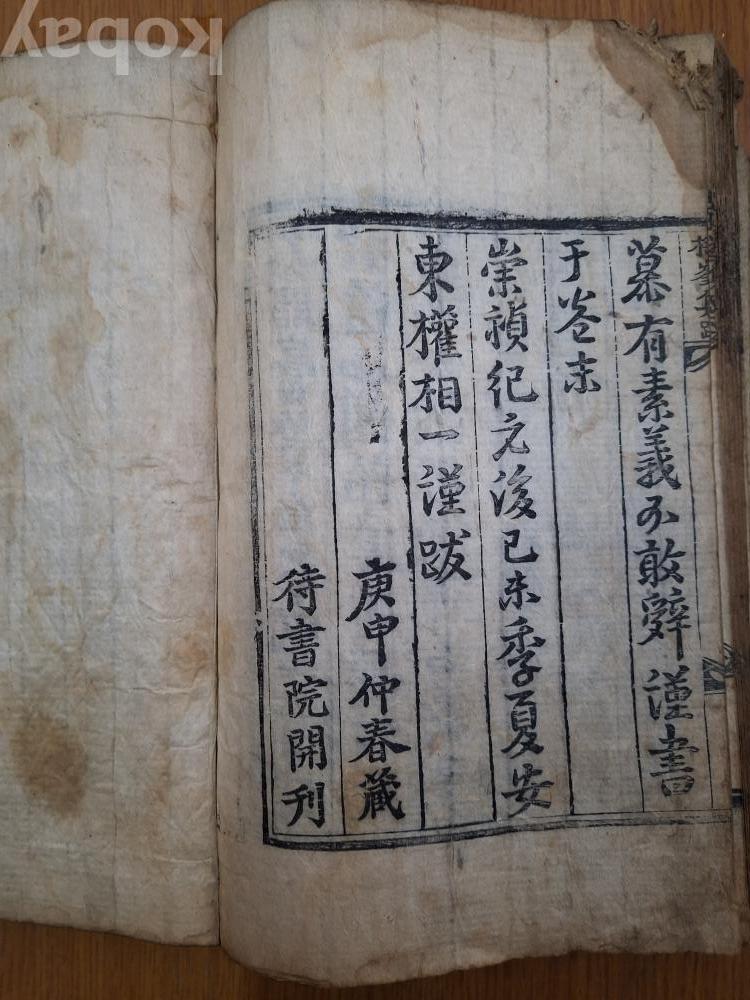 慕有素義不敢辭謹書
于卷末
崇禎紀元後己未季夏安
東權相一謹跋
庚申仲春藏
待書院開刊
kobay